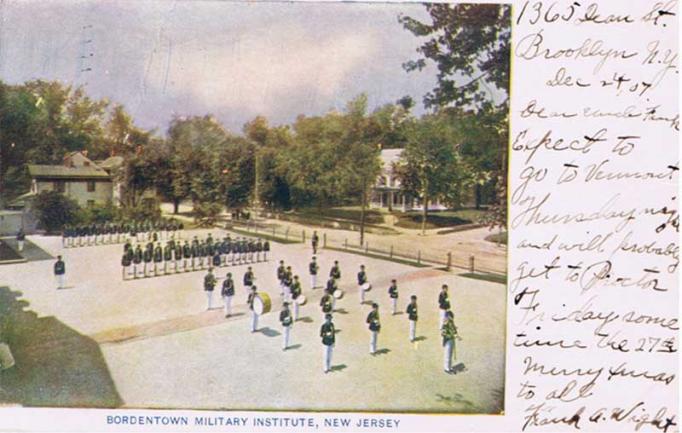 1365 Dean St.
Brooklyn N.Y.
Dec 24, 07
Dear uncle Frank
Expect to
go to Vermont
Thursday night
and will probably
get to Proctor
Friday some
time the 27th
Merry Xmas
to all
Frank A. Wight
BORDENTOWN MILITARY INSTITUTE, NEW JERSEY